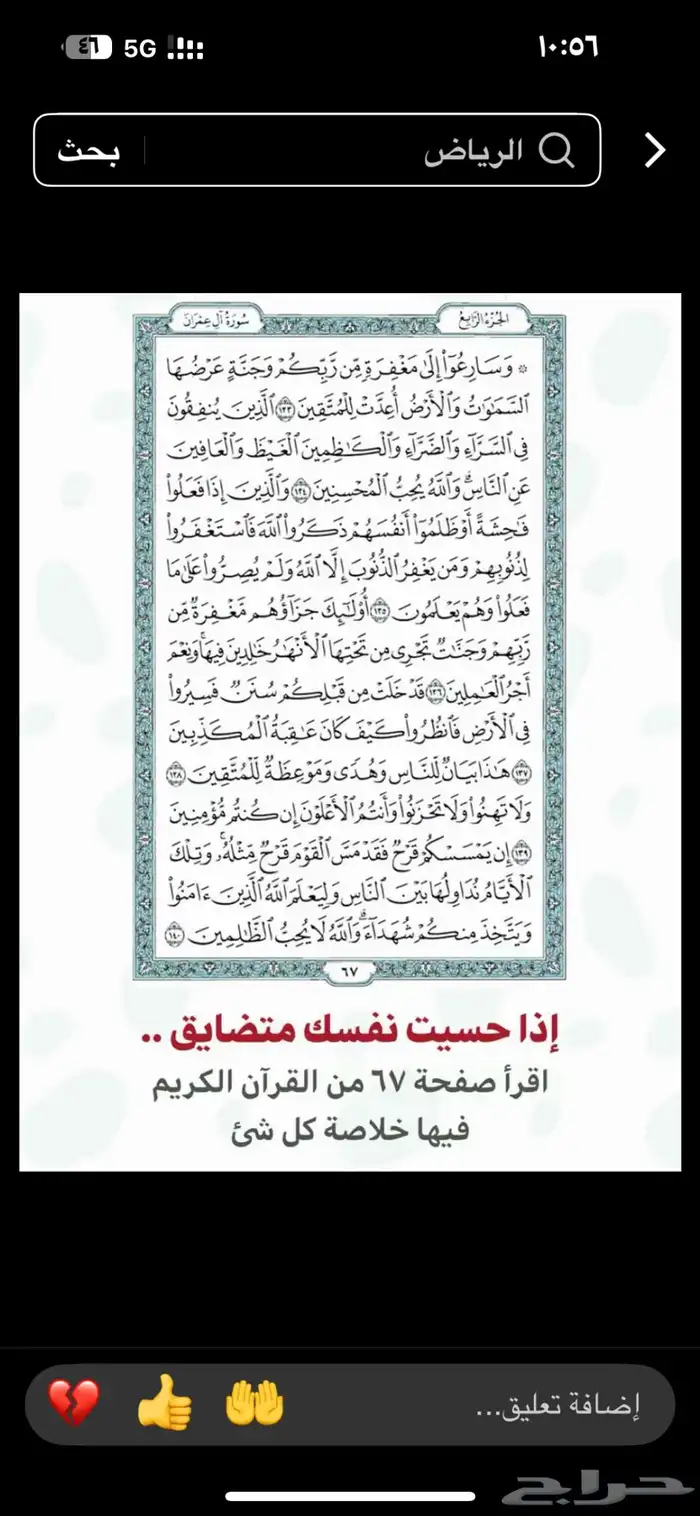 ١٠:٥٦
5G ٤٦
الرياض
بحث
الجزء الرابع
سورة آل عمران
۞ وَسَارِعُوٓا۟ إِلَىٰ مَغْفِرَةٍ مِّن رَّبِّكُمْ وَجَنَّةٍ عَرْضُهَا
ٱلسَّمَـٰوَٰتُ وَٱلْأَرْضُ أُعِدَّتْ لِلْمُتَّقِينَ ١٣٣ ٱلَّذِينَ يُنفِقُونَ
فِى ٱلسَّرَّآءِ وَٱلضَّرَّآءِ وَٱلْكَـٰظِمِينَ ٱلْغَيْظَ وَٱلْعَافِينَ
عَنِ ٱلنَّاسِ ۗ وَٱللَّهُ يُحِبُّ ٱلْمُحْسِنِينَ ١٣٤ وَٱلَّذِينَ إِذَا فَعَلُوا۟
فَـٰحِشَةً أَوْ ظَلَمُوٓا۟ أَنفُسَهُمْ ذَكَرُوا۟ ٱللَّهَ فَٱسْتَغْفَرُوا۟
لِذُنُوبِهِمْ وَمَن يَغْفِرُ ٱلذُّنُوبَ إِلَّا ٱللَّهُ وَلَمْ يُصِرُّوا۟ عَلَىٰ مَا
فَعَلُوا۟ وَهُمْ يَعْلَمُونَ ١٣٥ أُو۟لَـٰٓئِكَ جَزَآؤُهُم مَّغْفِرَةٌ مِّن
رَّبِّهِمْ وَجَنَّـٰتٌ تَجْرِى مِن تَحْتِهَا ٱلْأَنْهَـٰرُ خَـٰلِدِينَ فِيهَا ۚ وَنِعْمَ
أَجْرُ ٱلْعَـٰمِلِينَ ١٣٦ قَدْ خَلَتْ مِن قَبْلِكُمْ سُنَنٌ فَسِيرُوا۟
فِى ٱلْأَرْضِ فَٱنظُرُوا۟ كَيْفَ كَانَ عَـٰقِبَةُ ٱلْمُكَذِّبِينَ
١٣٧ هَـٰذَا بَيَانٌ لِّلنَّاسِ وَهُدًى وَمَوْعِظَةٌ لِّلْمُتَّقِينَ ١٣٨
وَلَا تَهِنُوا۟ وَلَا تَحْزَنُوا۟ وَأَنتُمُ ٱلْأَعْلَوْنَ إِن كُنتُم مُّؤْمِنِينَ
١٣٩ إِن يَمْسَسْكُمْ قَرْحٌ فَقَدْ مَسَّ ٱلْقَوْمَ قَرْحٌ مِّثْلُهُۥ ۚ وَتِلْكَ
ٱلْأَيَّامُ نُدَاوِلُهَا بَيْنَ ٱلنَّاسِ وَلِيَعْلَمَ ٱللَّهُ ٱلَّذِينَ ءَامَنُوا۟
وَيَتَّخِذَ مِنكُمْ شُهَدَآءَ ۗ وَٱللَّهُ لَا يُحِبُّ ٱلظَّـٰلِمِينَ ١٤٠
٦٧
إذا حسيت نفسك متضايق ..
اقرأ صفحة ٦٧ من القرآن الكريم
فيها خلاصة كل شئ
إضافة تعليق...
حراج